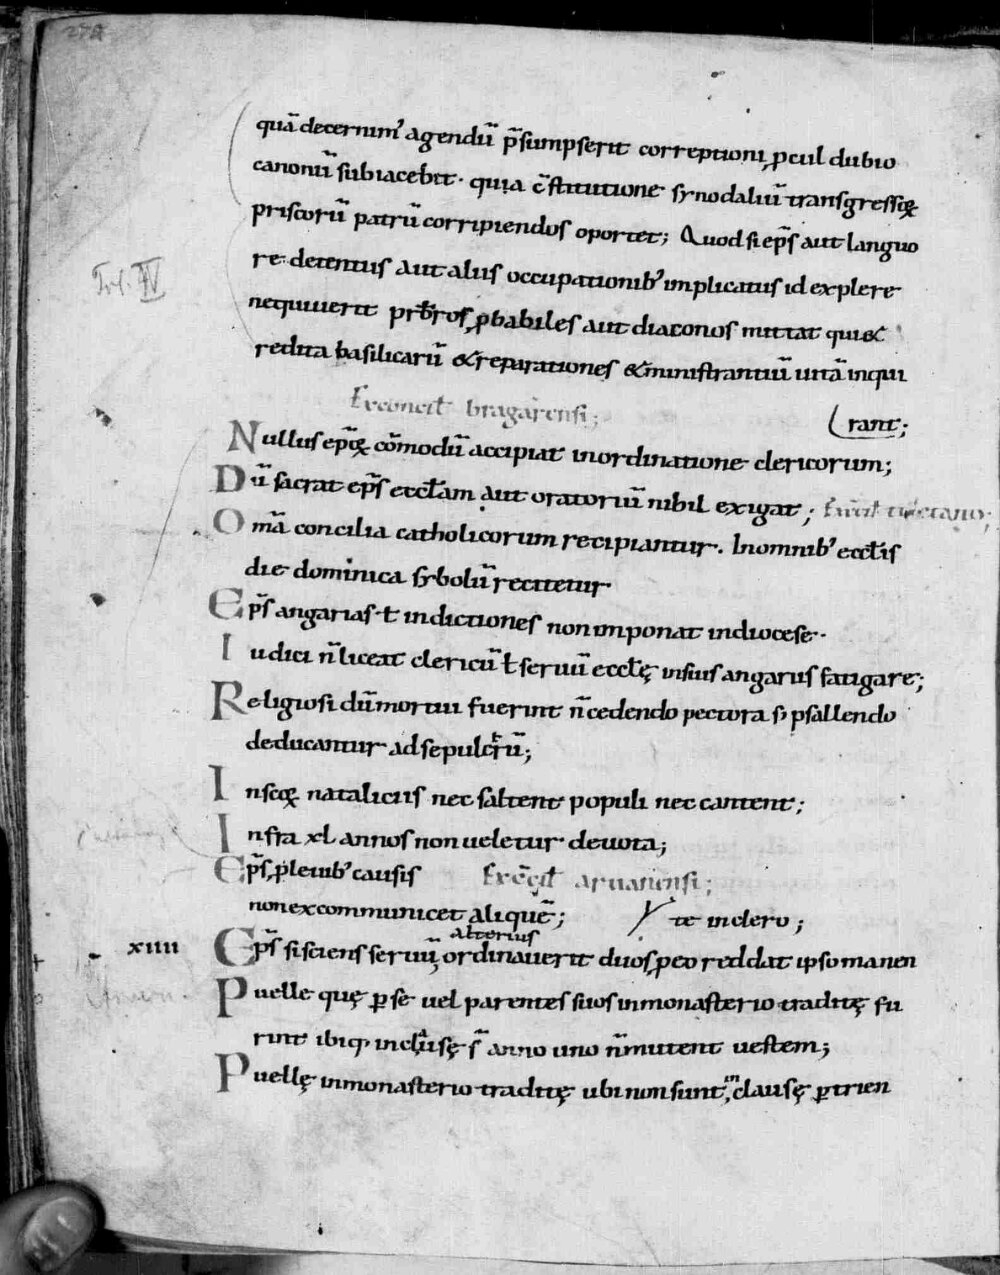 quā decernim᾽ agendū p̄sumpserit correptioni ꝓcul dubio
canonū subiacebit. quia c̄stitutione synodaliū transgressoꝝ
priscorū patrū corripiendos oportet; Quod si ep̄s aut languo
re detentus aut aliis occupationib᾽ implicatus id explere
nequiuerit prb̄ros ꝓbabiles aut diaconos mittat qui &
redita basilicarū & reparationes & ministrantiū uitā inqui
rant;
Ex concil̄ bragarensi;
Nullus ep̄oꝝ cōmodū accipiat in ordinatione clericorum;
Dū sacrat ep̄s eccl̄am aut oratoriū nihil exigat;
Omā concilia catholicorum recipiantur. In omnib᾽ eccl̄is
die dominica sȳbolū recitetur
Ep̄s angarias ł indictiones non imponat in diocese.
Iudici n̄ liceat clericū ł seruū eccl̄ę in suis angariis fatigare;
Religiosi dū mortui fuerint n̄ cedendo pectora s; psallendo
deducantur ad sepulcrū;
In scōꝝ nataliciis nec saltent populi nec cantent;
Infra xl annos non ueletur deuota;
Ep̄s ꝓ leuib᾽ causis
non excommunicet aliquē;
te in clero;
alterius
xiiii Ep̄s si sciens seruū ordinauerit duos ꝓ eo reddat ipso manen
Puelle quę ꝑ se uel parentes suos in monasterio traditę fu
rint ibiq; inclusę s̄ anno uno n̄ mutent uestem;
Puellę in monasterio traditę ubi non sunt inclausę ꝑ trien